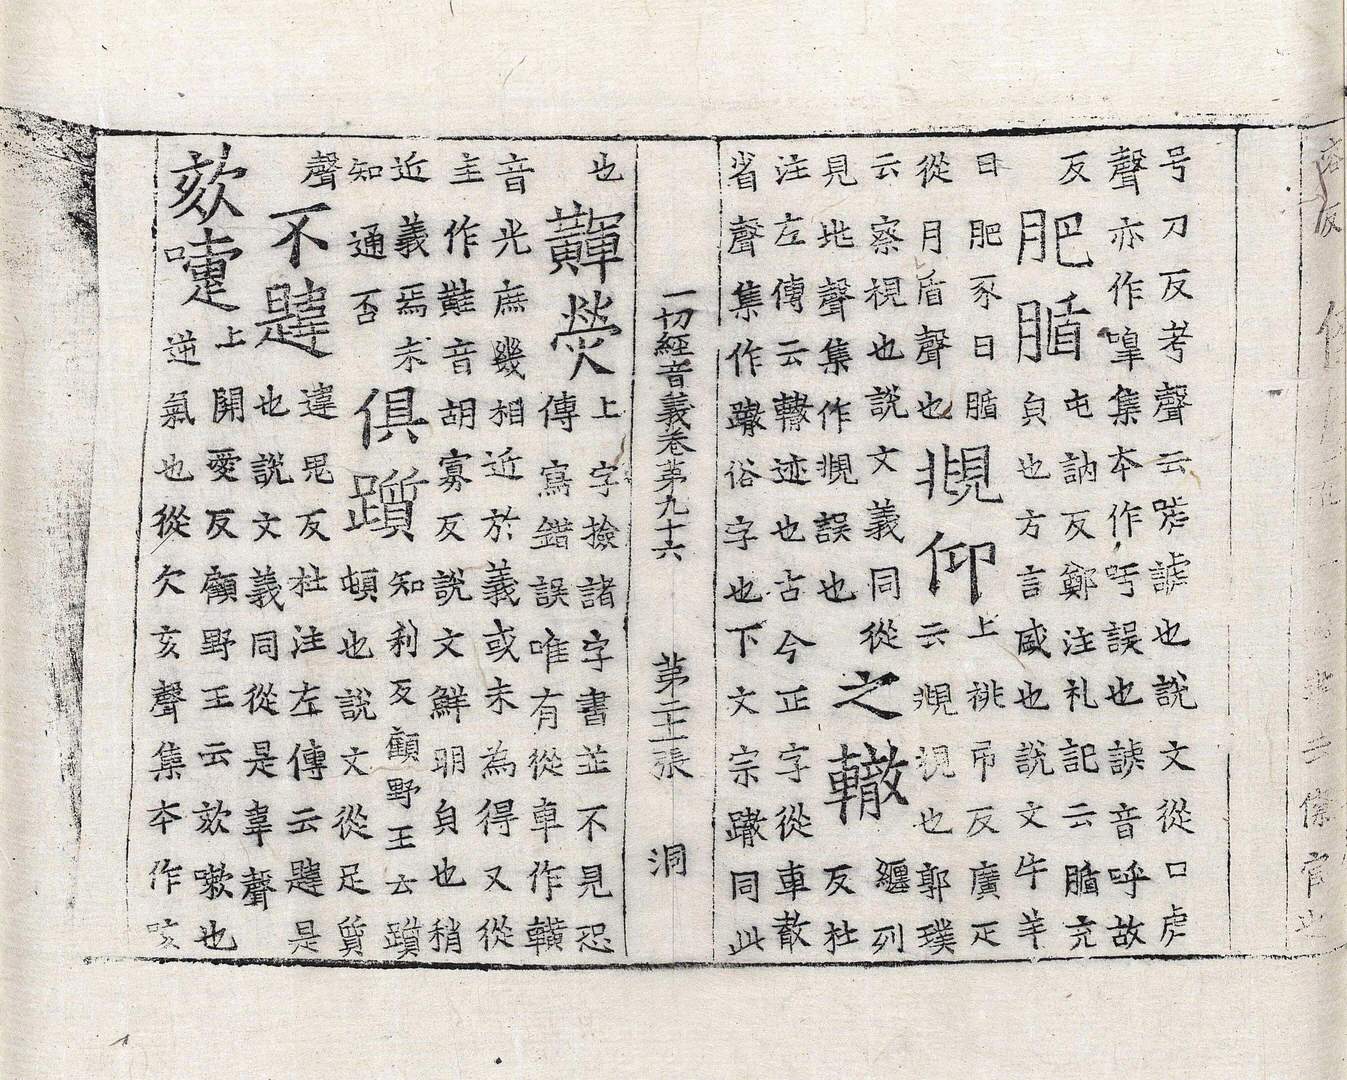 号刀反考聲云嗥謼也說文從口虎
聲亦作嘷集本作吘誤也謼音呼故
反
肥腯
屯訥反鄭注礼記云腯充
皃也方言咸也說文牛羊
曰肥豕曰腯
從月盾聲也
覜仰
上祧吊反廣疋
云覜視也郭璞
云察視也說文義同從
見兆聲集作覜誤也
之轍
纏列
反杜
注左傳云轍迹也古今正字從車散
省聲集作蹾俗字也下文宗蹾同此
一切經音義卷第九十六 第二十一張 洞
也
熒
上字撿諸字書並不見恐
傳寫錯誤唯有從車作䡣
音光庶幾相近於義或未為得又從
圭作黊音胡寡反說文鮮明皃也稍
近義焉未
知通否
俱躓
知利反顧野王云躓
頓也說文從足質
聲
不韙
違思反杜注左傳云韙是
也說文義同從是韋聲
欬嚏
上開愛反顧野王云欬嗽也
逆氣也從欠亥聲集本作咳